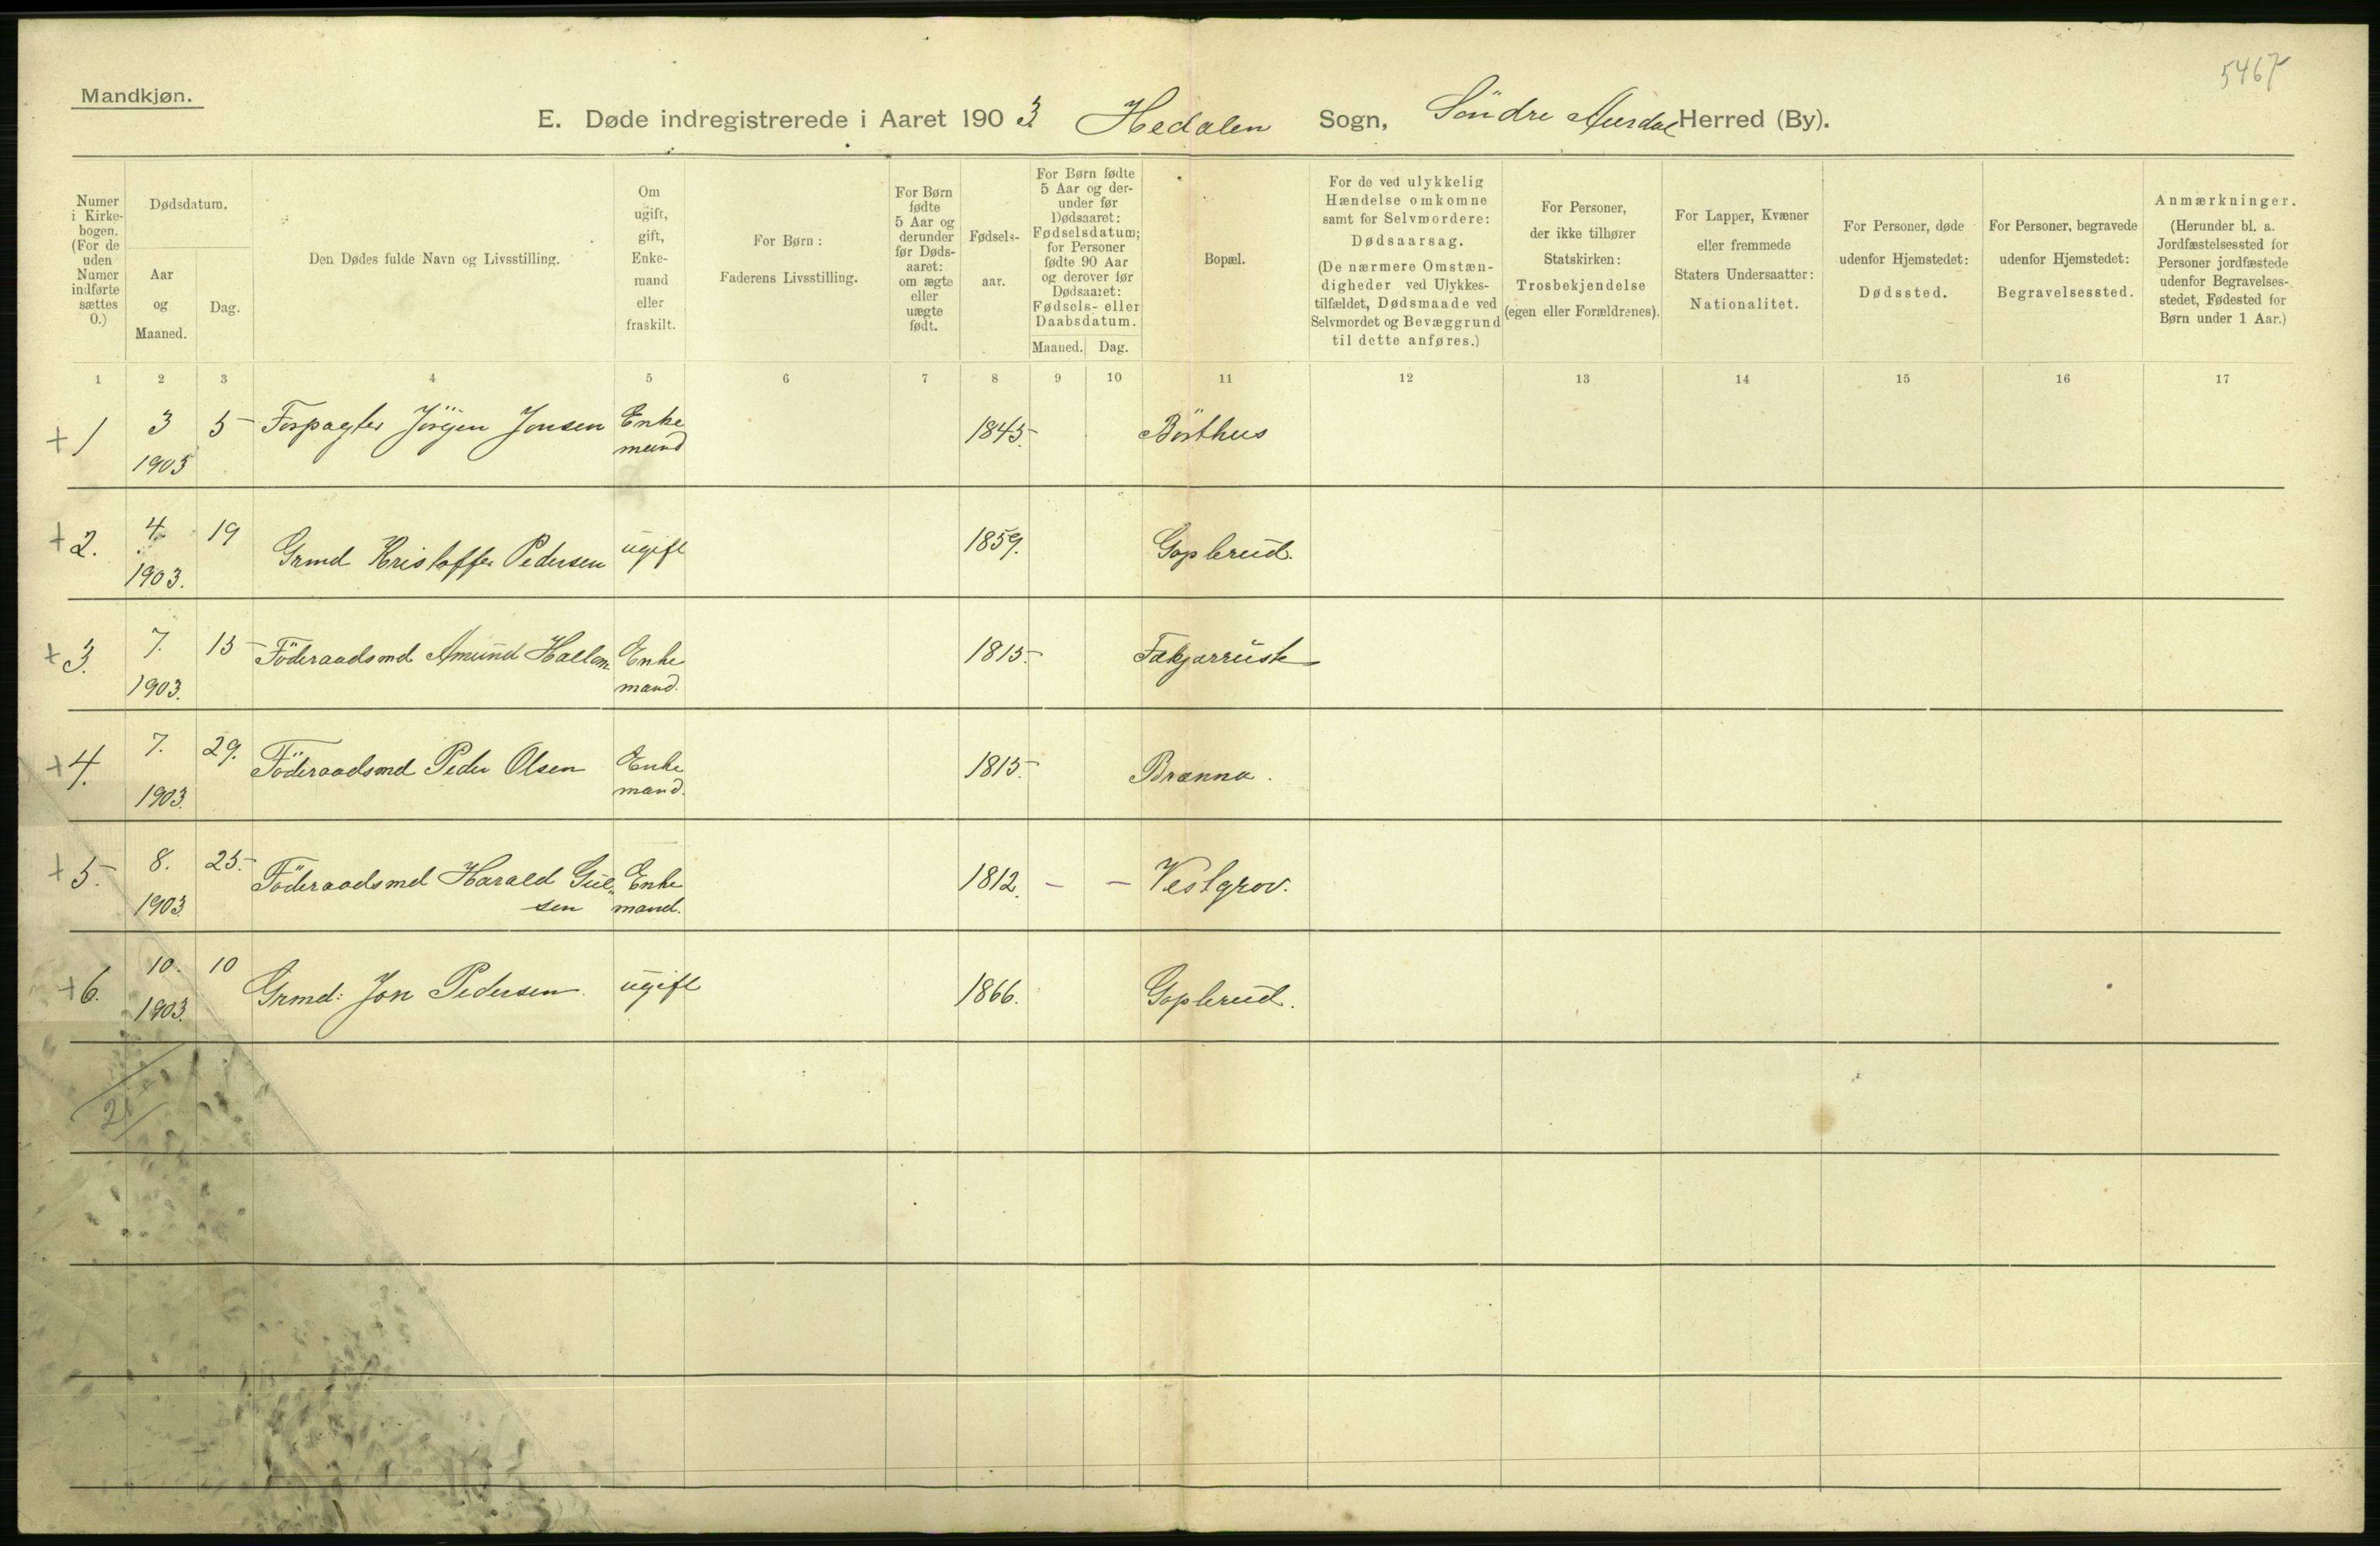 5467
Mandkjøn.
E. Døde indregistrerede i Aaret 1903 Hedalen Sogn, Søndre Aurdal Herred (By).
Numer
i Kirke-
bogen.
(For de
uden
Numer
indførte
sættes
0.)
Dødsdatum.
Aar
og
Maaned.
Dag.
Den Dødes fulde Navn og Livsstilling.
Om
ugift,
gift,
Enke-
mand
eller
fraskilt.
For Børn:
Faderens Livsstilling.
For Børn
fødte
5 Aar og
derunder
før Døds-
aaret:
om ægte
eller
uægte
født.
Fødsels-
aar.
For Børn fødte
5 Aar og der-
under før
Dødsaaret:
Fødselsdatum;
for Personer
fødte 90 Aar
og derover før
Dødsaaret:
Fødsels- eller
Daabsdatum.
Maaned. Dag.
Bopæl.
For de ved ulykkelig
Hændelse omkomne
samt for Selvmordere:
Dødsaarsag.
(De nærmere Omstæn-
digheder ved Ulykkes-
tilfældet, Dødsmaade ved
Selvmordet og Bevæggrund
til dette anføres.)
For Personer,
der ikke tilhører
Statskirken:
Trosbekjendelse
(egen eller Forældrenes).
For Lapper, Kvæner
eller fremmede
Staters Undersaatter:
Nationalitet.
For Personer, døde
udenfor Hjemstedet:
Dødssted.
For Personer, begravede
udenfor Hjemstedet:
Begravelsessted.
Anmærkninger.
(Herunder bl. a.
Jordfæstelsessted for
Personer jordfæstede
udenfor Begravelses-
stedet, Fødested for
Børn under 1 Aar.)
1 2 3 4 5 6 7 8 9 10 11 12 13 14 15 16 17
+1 3 5 Forpagter Jörgen Jonsen Enke 1845. Börthus
1903 mand
+2. 4. 19 Grmd Kristoffer Pedersen ugift 1859. Goplerud.
1903.
+3. 7. 15 Föderaadsmd Amund Enke 1815.
1903. mand.
+4. 7. 29. Föderaadsmd Peder Olsen Enke 1815. Brænna.
1903. mand.
+5. 8. 25. Föderaadsmd Harald Gul„ Enke 1812. - - Vestgrov.
1903 sen mand.
+6. 10. 10 Grmd: Jon Pedersen. ugift 1866. Goplerud.
1903.
2